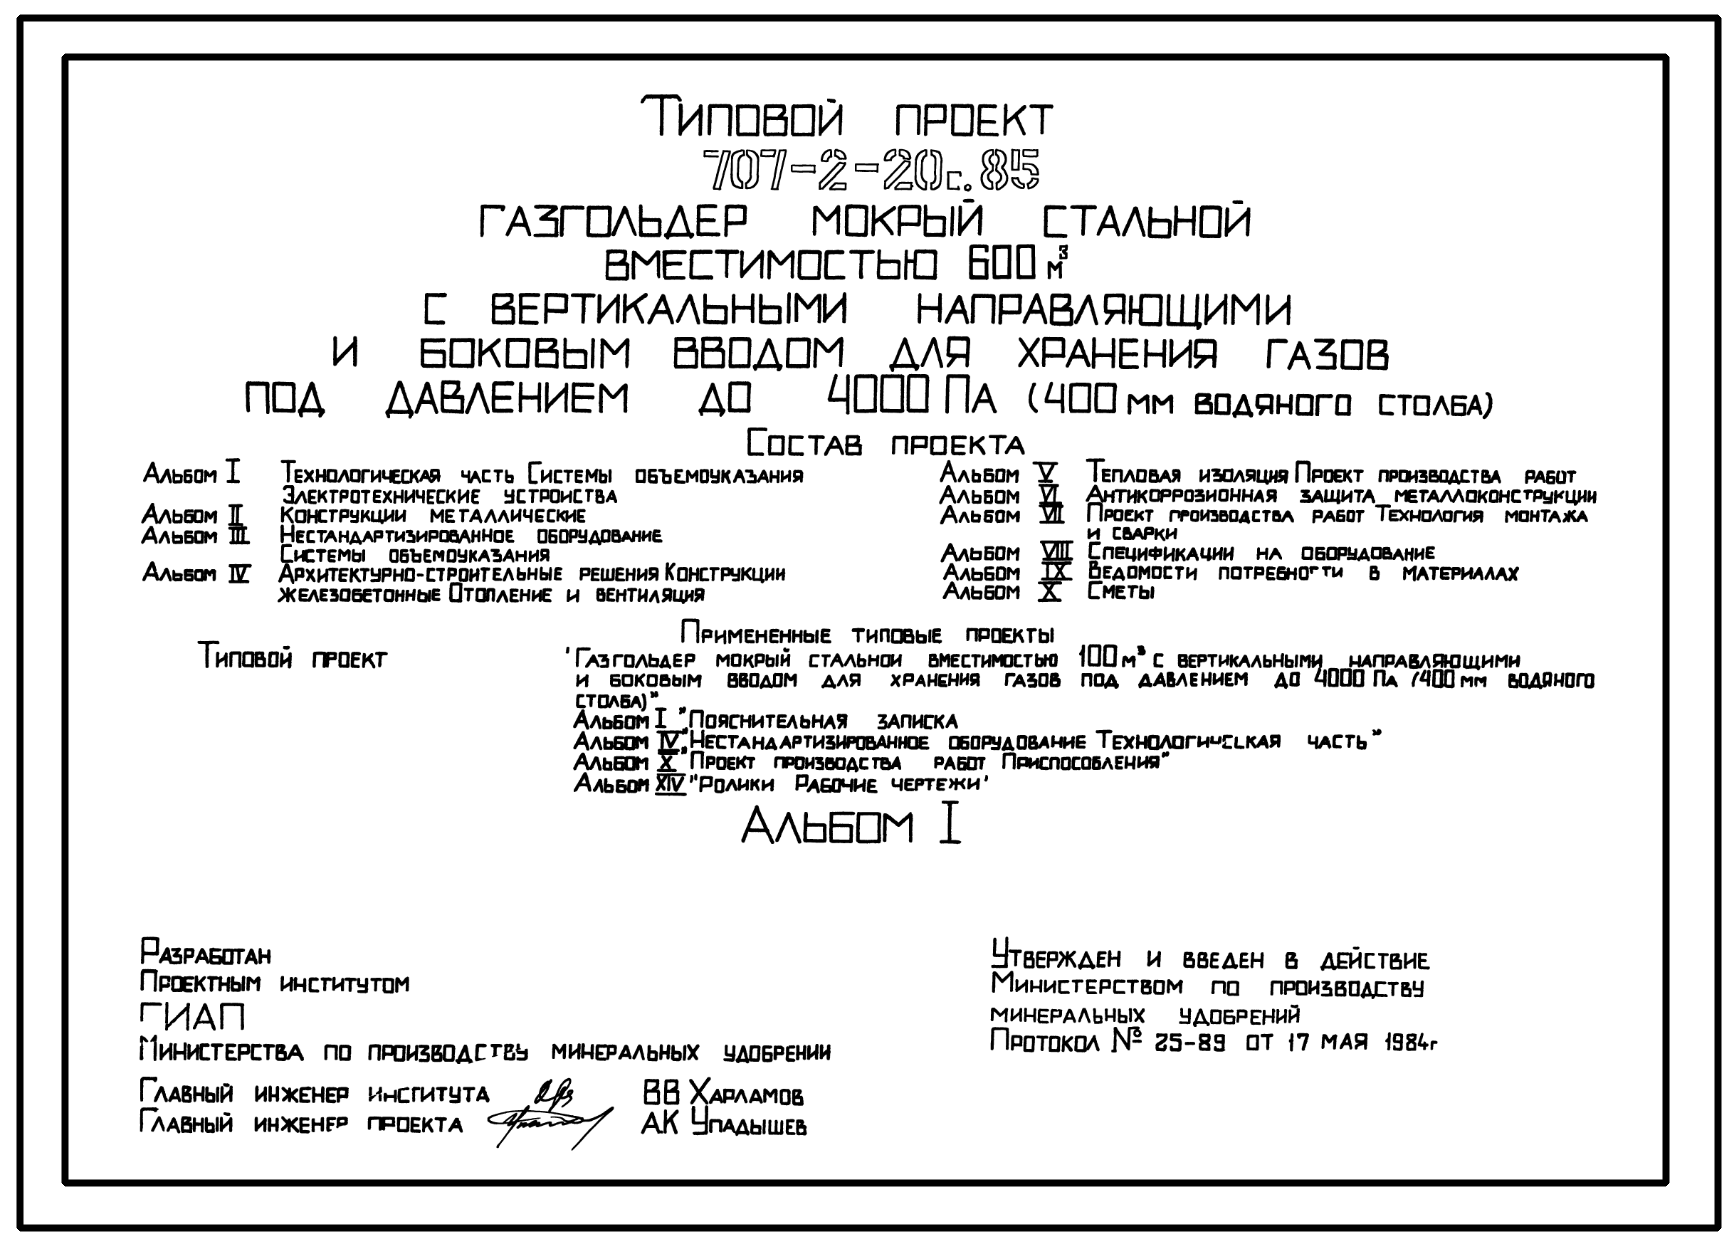 Типовой проект
707-2-20с.85
Газгольдер мокрый стальной
вместимостью 600 м³
с вертикальными направляющими
и боковым вводом для хранения газов
под давлением до 4000 Па (400 мм водяного столба)
Состав проекта
Альбом I Технологическая часть Системы объемоуказания
Электротехнические устроиства
Альбом II Конструкции металлические
Альбом III Нестандартизированное оборудование
Системы объемоуказания
Альбом IV Архитектурно-строительные решения Конструкции
железобетонные Отопление и вентиляция
Альбом V Тепловая изоляция Проект производства работ
Альбом VI Антикоррозионная защита металлоконструкции
Альбом VII Проект производства работ Технология монтажа
и сварки
Альбом VIII Спецификации на оборудование
Альбом IX Ведомости потребности в материалах
Альбом X Сметы
Примененные типовые проекты
Типовой проект 'Газгольдер мокрый стальнои вместимостью 100 м³ с вертикальными направляющими
и боковым вводом для хранения газов под давлением до 4000 Па (400 мм водяного
столба)"
Альбом I "Пояснительная записка
Альбом IV "Нестандартизированное оборудование Технологическая часть"
Альбом X "Проект производства работ Приспособления"
Альбом XIV "Ролики Рабочие чертежи'
Альбом I
Разработан
Проектным институтом
ГИАП
Министерства по производству минеральных удобрении
Главный инженер института ВВ Харламов
Главный инженер проекта АК Упадышев
Утвержден и введен в действие
Министерством по производству
минеральных удобрений
Протокол № 25-89 от 17 мая 1984г